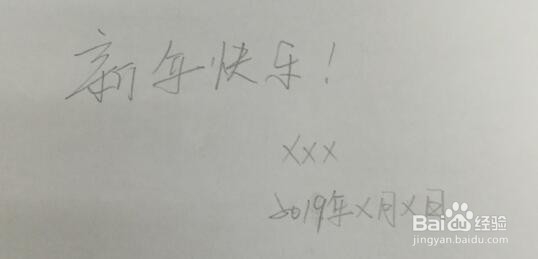 新年快乐!
xxx
2019年x月x日
Baidu经验
jingyan.baidu.com